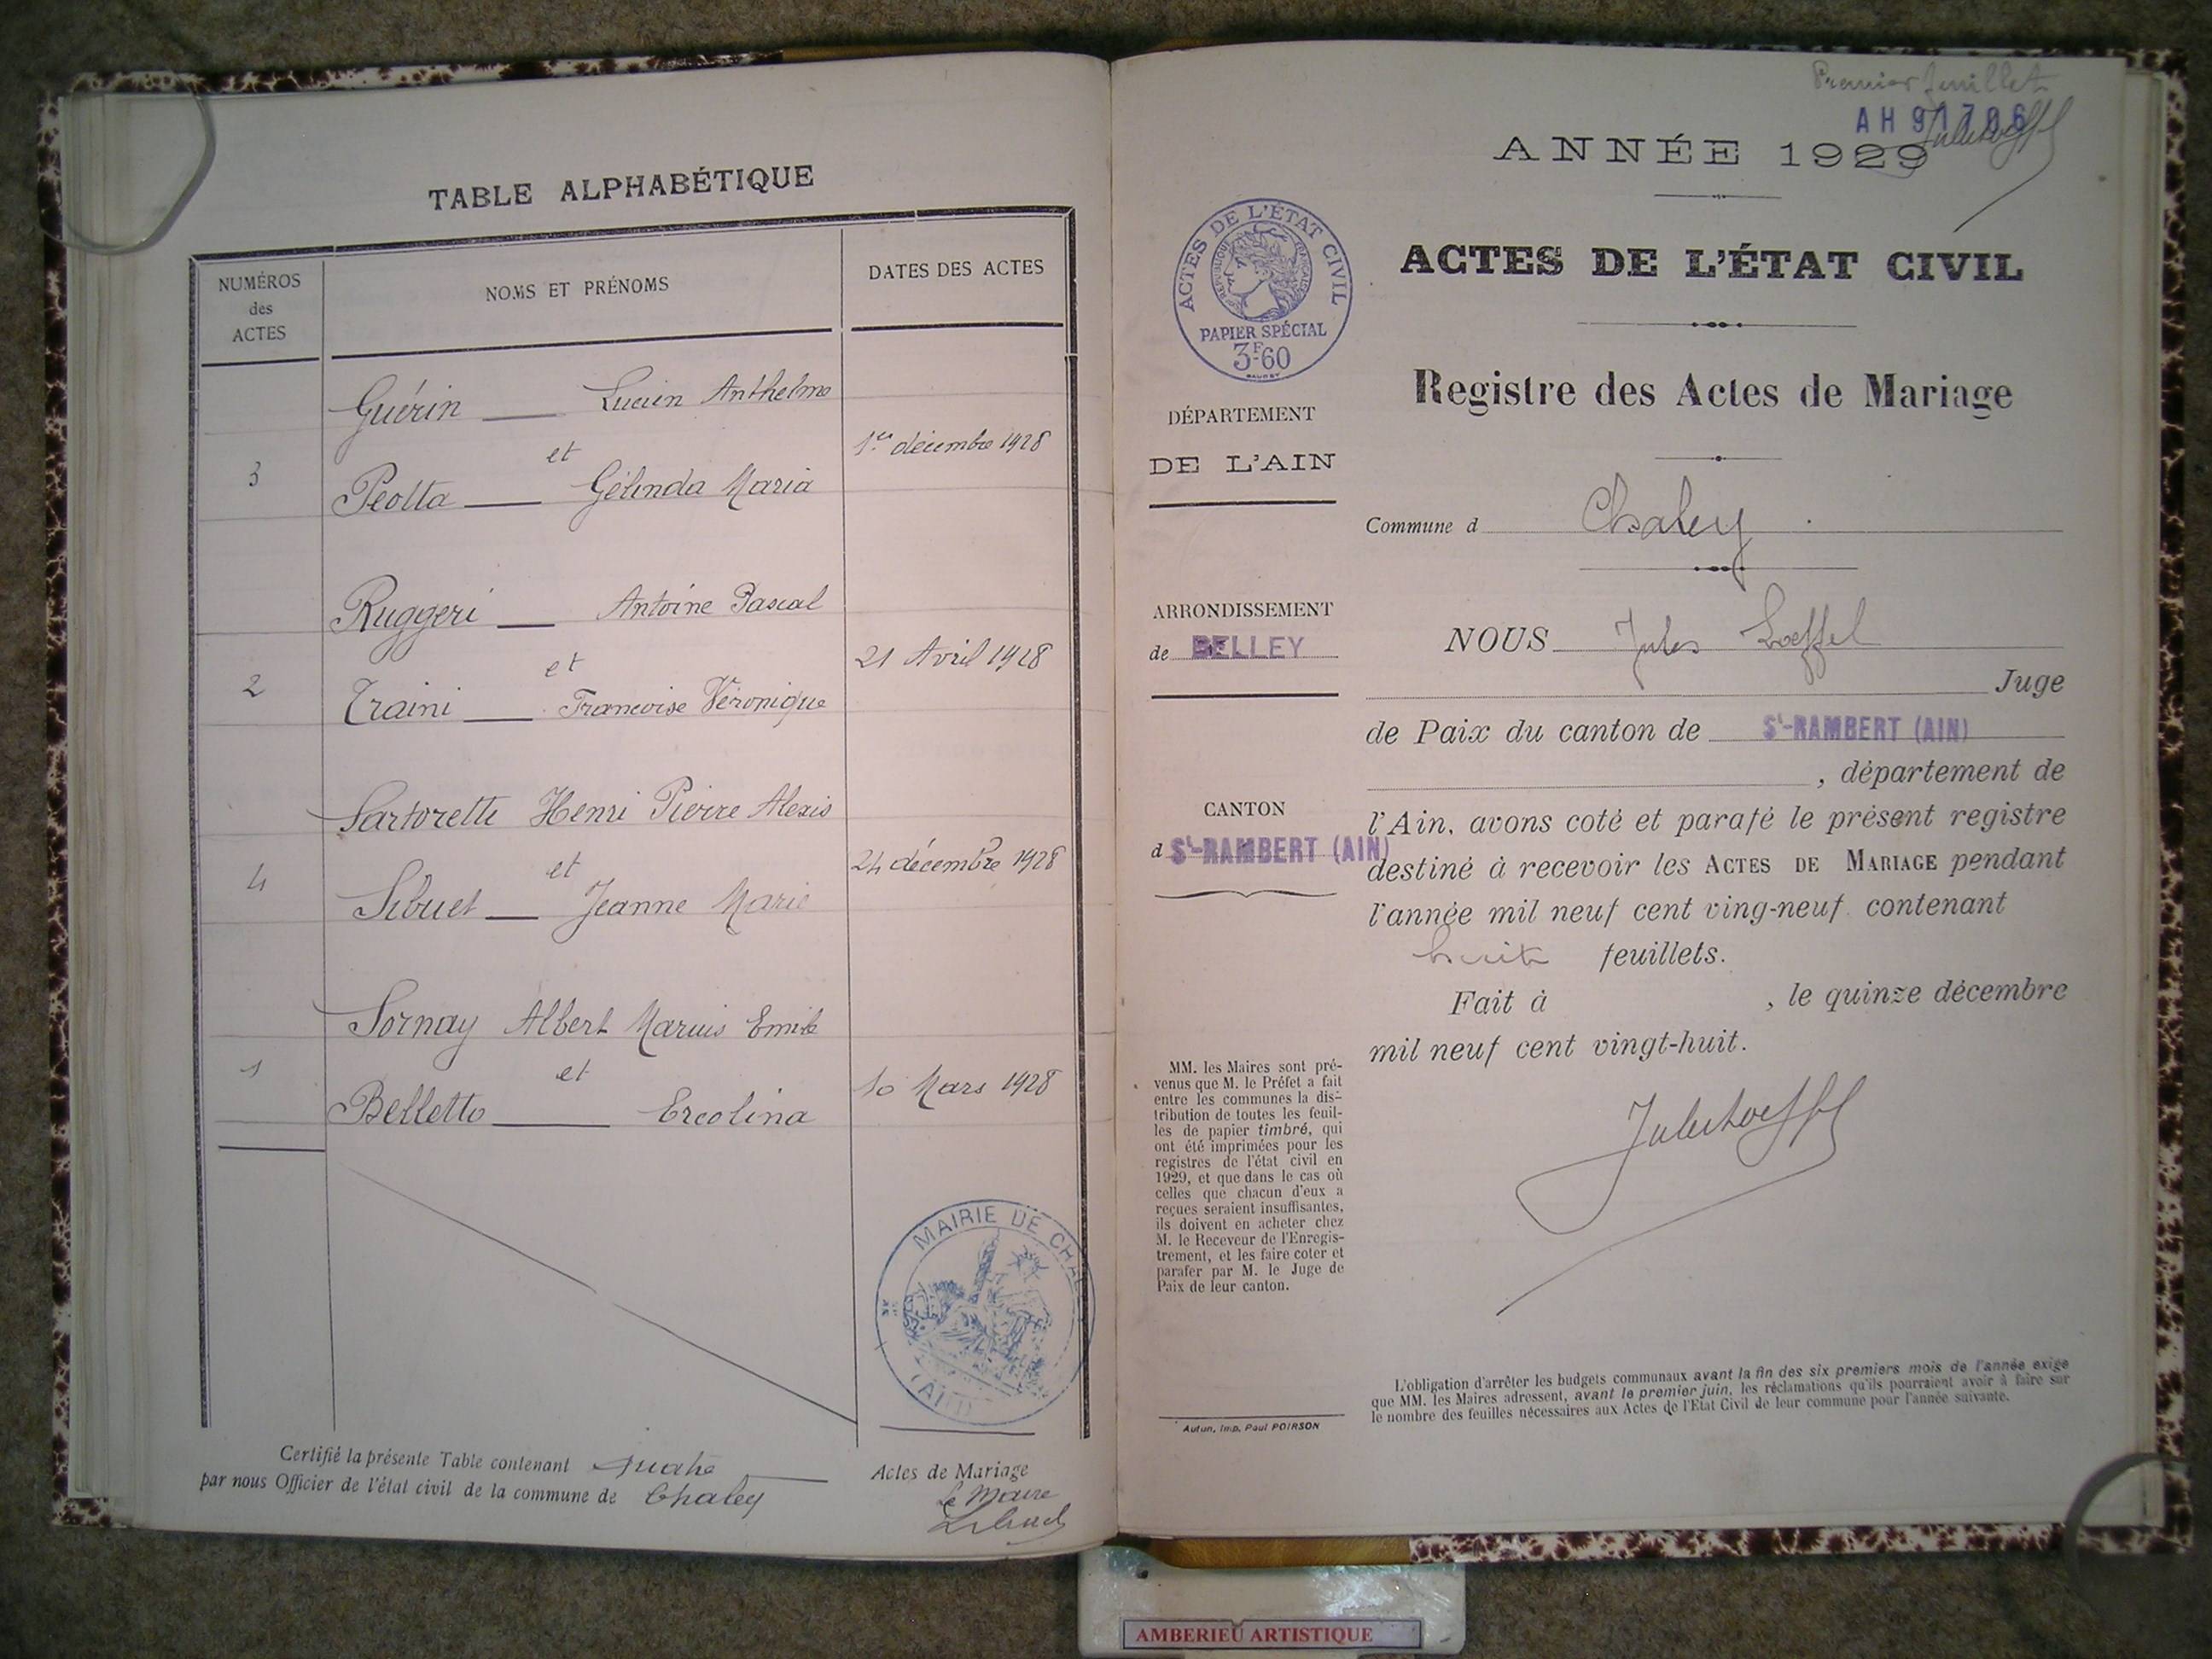 TABLE ALPHABÉTIQUE
NUMÉROS
des
ACTES
NOMS ET PRÉNOMS
DATES DES ACTES
Guérin — Lucien Anthelme
et
1er décembre 1928
3
Peotta — Gélinda Maria
Ruggeri — Antoine Pascal
et
21 Avril 1928
2
Traini — Francoise Véronique
Sartoretti Henri Pierre Alexis
et
24 décembre 1928
4
Sibuet — Jeanne Marie
Sornay Albert Marius Emile
1
et
10 Mars 1928
Belletto — Ercolina
MAIRIE DE CHAL
(AIN)
Certifié la présente Table contenant quatre Actes de Mariage
par nous Officier de l'état civil de la commune de Chaley
Le Maire
Premier feuillet
AH 91706
ANNÉE 1929
ACTES DE L'ÉTAT CIVIL
RÉPUBLIQUE FRANÇAISE
PAPIER SPÉCIAL
3F.60
ACTES DE L'ÉTAT CIVIL
Registre des Actes de Mariage
DÉPARTEMENT
DE L'AIN
Commune d Chaley
ARRONDISSEMENT
de BELLEY
CANTON
d St-RAMBERT (AIN)
NOUS Jules Loeffel
Juge
de Paix du canton de St-RAMBERT (AIN)
, département de
l'Ain, avons coté et parafé le présent registre
destiné à recevoir les ACTES DE MARIAGE pendant
l'année mil neuf cent ving-neuf contenant
huit feuillets.
Fait à , le quinze décembre
mil neuf cent vingt-huit.
Jules Loeffel
MM. les Maires sont pré-
venus que M. le Préfet a fait
entre les communes la dis-
tribution de toutes les feuil-
les de papier timbré, qui
ont été imprimées pour les
registres de l'état civil en
1929, et que dans le cas où
celles que chacun d'eux a
reçues seraient insuffisantes,
ils doivent en acheter chez
M. le Receveur de l'Enregis-
trement, et les faire coter et
parafer par M. le Juge de
Paix de leur canton.
Autun, Imp. Paul POIRSON
L'obligation d'arrêter les budgets communaux avant la fin des six premiers mois de l'année exige
que MM. les Maires adressent, avant le premier juin, les réclamations qu'ils pourraient avoir à faire sur
le nombre des feuilles nécessaires aux Actes de l'Etat Civil de leur commune pour l'année suivante.
AMBERIEU ARTISTIQUE